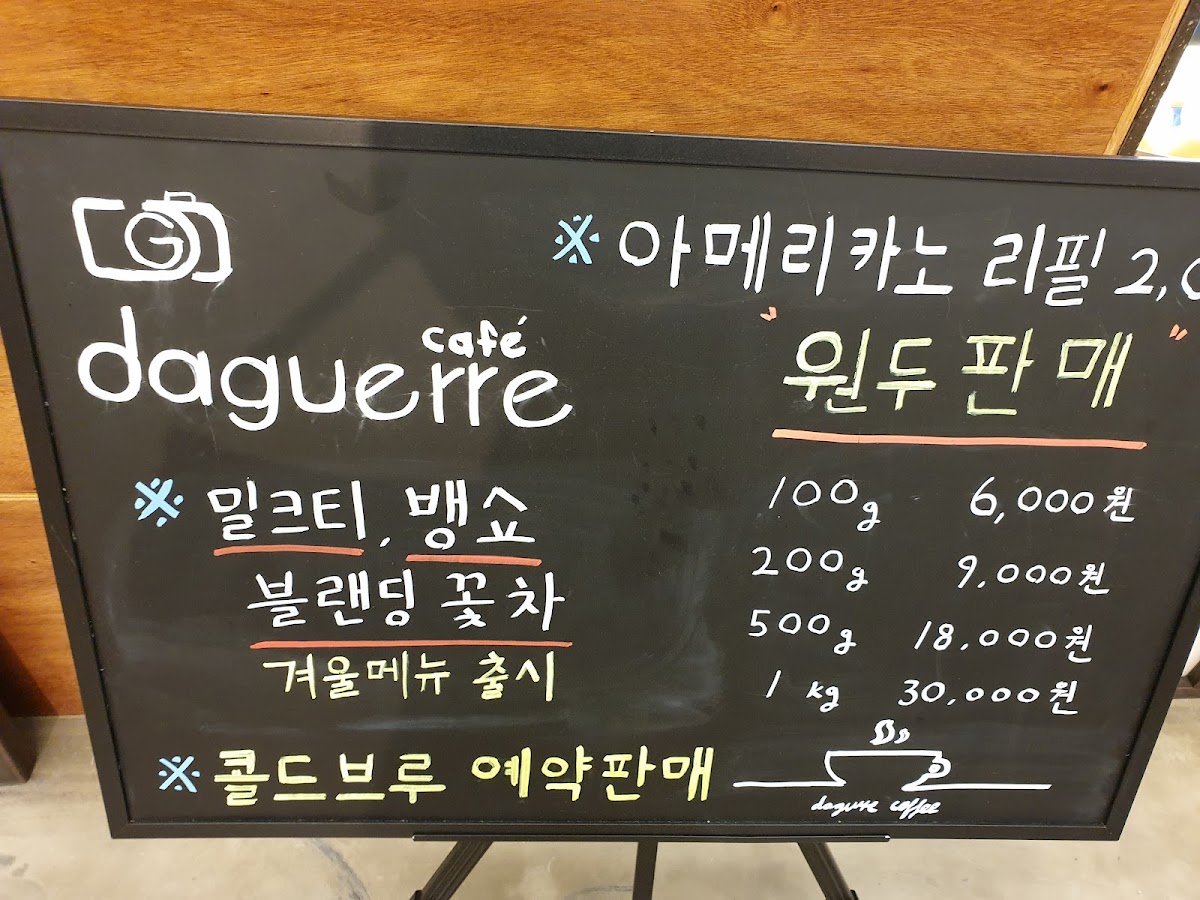 G
café
daguerre
※ 밀크티, 뱅쇼
블랜딩 꽃차
겨울메뉴 출시
※ 콜드브루 예약판매
※ 아메리카노 리필 2,0
"원두판매"
100g 6,000원
200g 9,000원
500g 18,000원
1 kg 30,000원
dagurre coffee